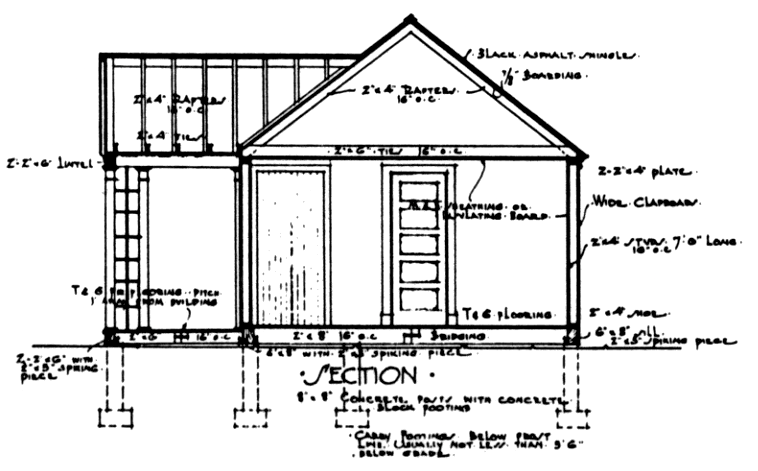 BLACK ASPHALT SHINGLES
7/8" BOARDING
2"x4" RAFTERS
16" O.C.
2"x4" RAFTERS
16" O.C.
2"x4" TIES
2"x6" TIES 16" O.C.
2-2"x6" LINTEL
2-2"x4" PLATE
WIDE CLAPBOARDS
SHEATHING OR
INSULATING BOARD
2"x4" STUDS 7'6" LONG
16" O.C.
T & G FLOORING PITCH
FROM BUILDING
T & G FLOORING
2"x4" SHOE
6"x8" SILL
2"x3" SPIKING PIECE
2"x6" 16" O.C.
2"x8" 16" O.C.
BRIDGING
2-2"x6" WITH
2"x3" SPIKING
PIECE
6"x8" WITH 2"x3" SPIKING PIECE
·SECTION·
8"x8" CONCRETE POSTS WITH CONCRETE
BLOCK FOOTING
CARRY FOOTINGS BELOW FROST
LINE. USUALLY NOT LESS THAN 3'6"
BELOW GRADE